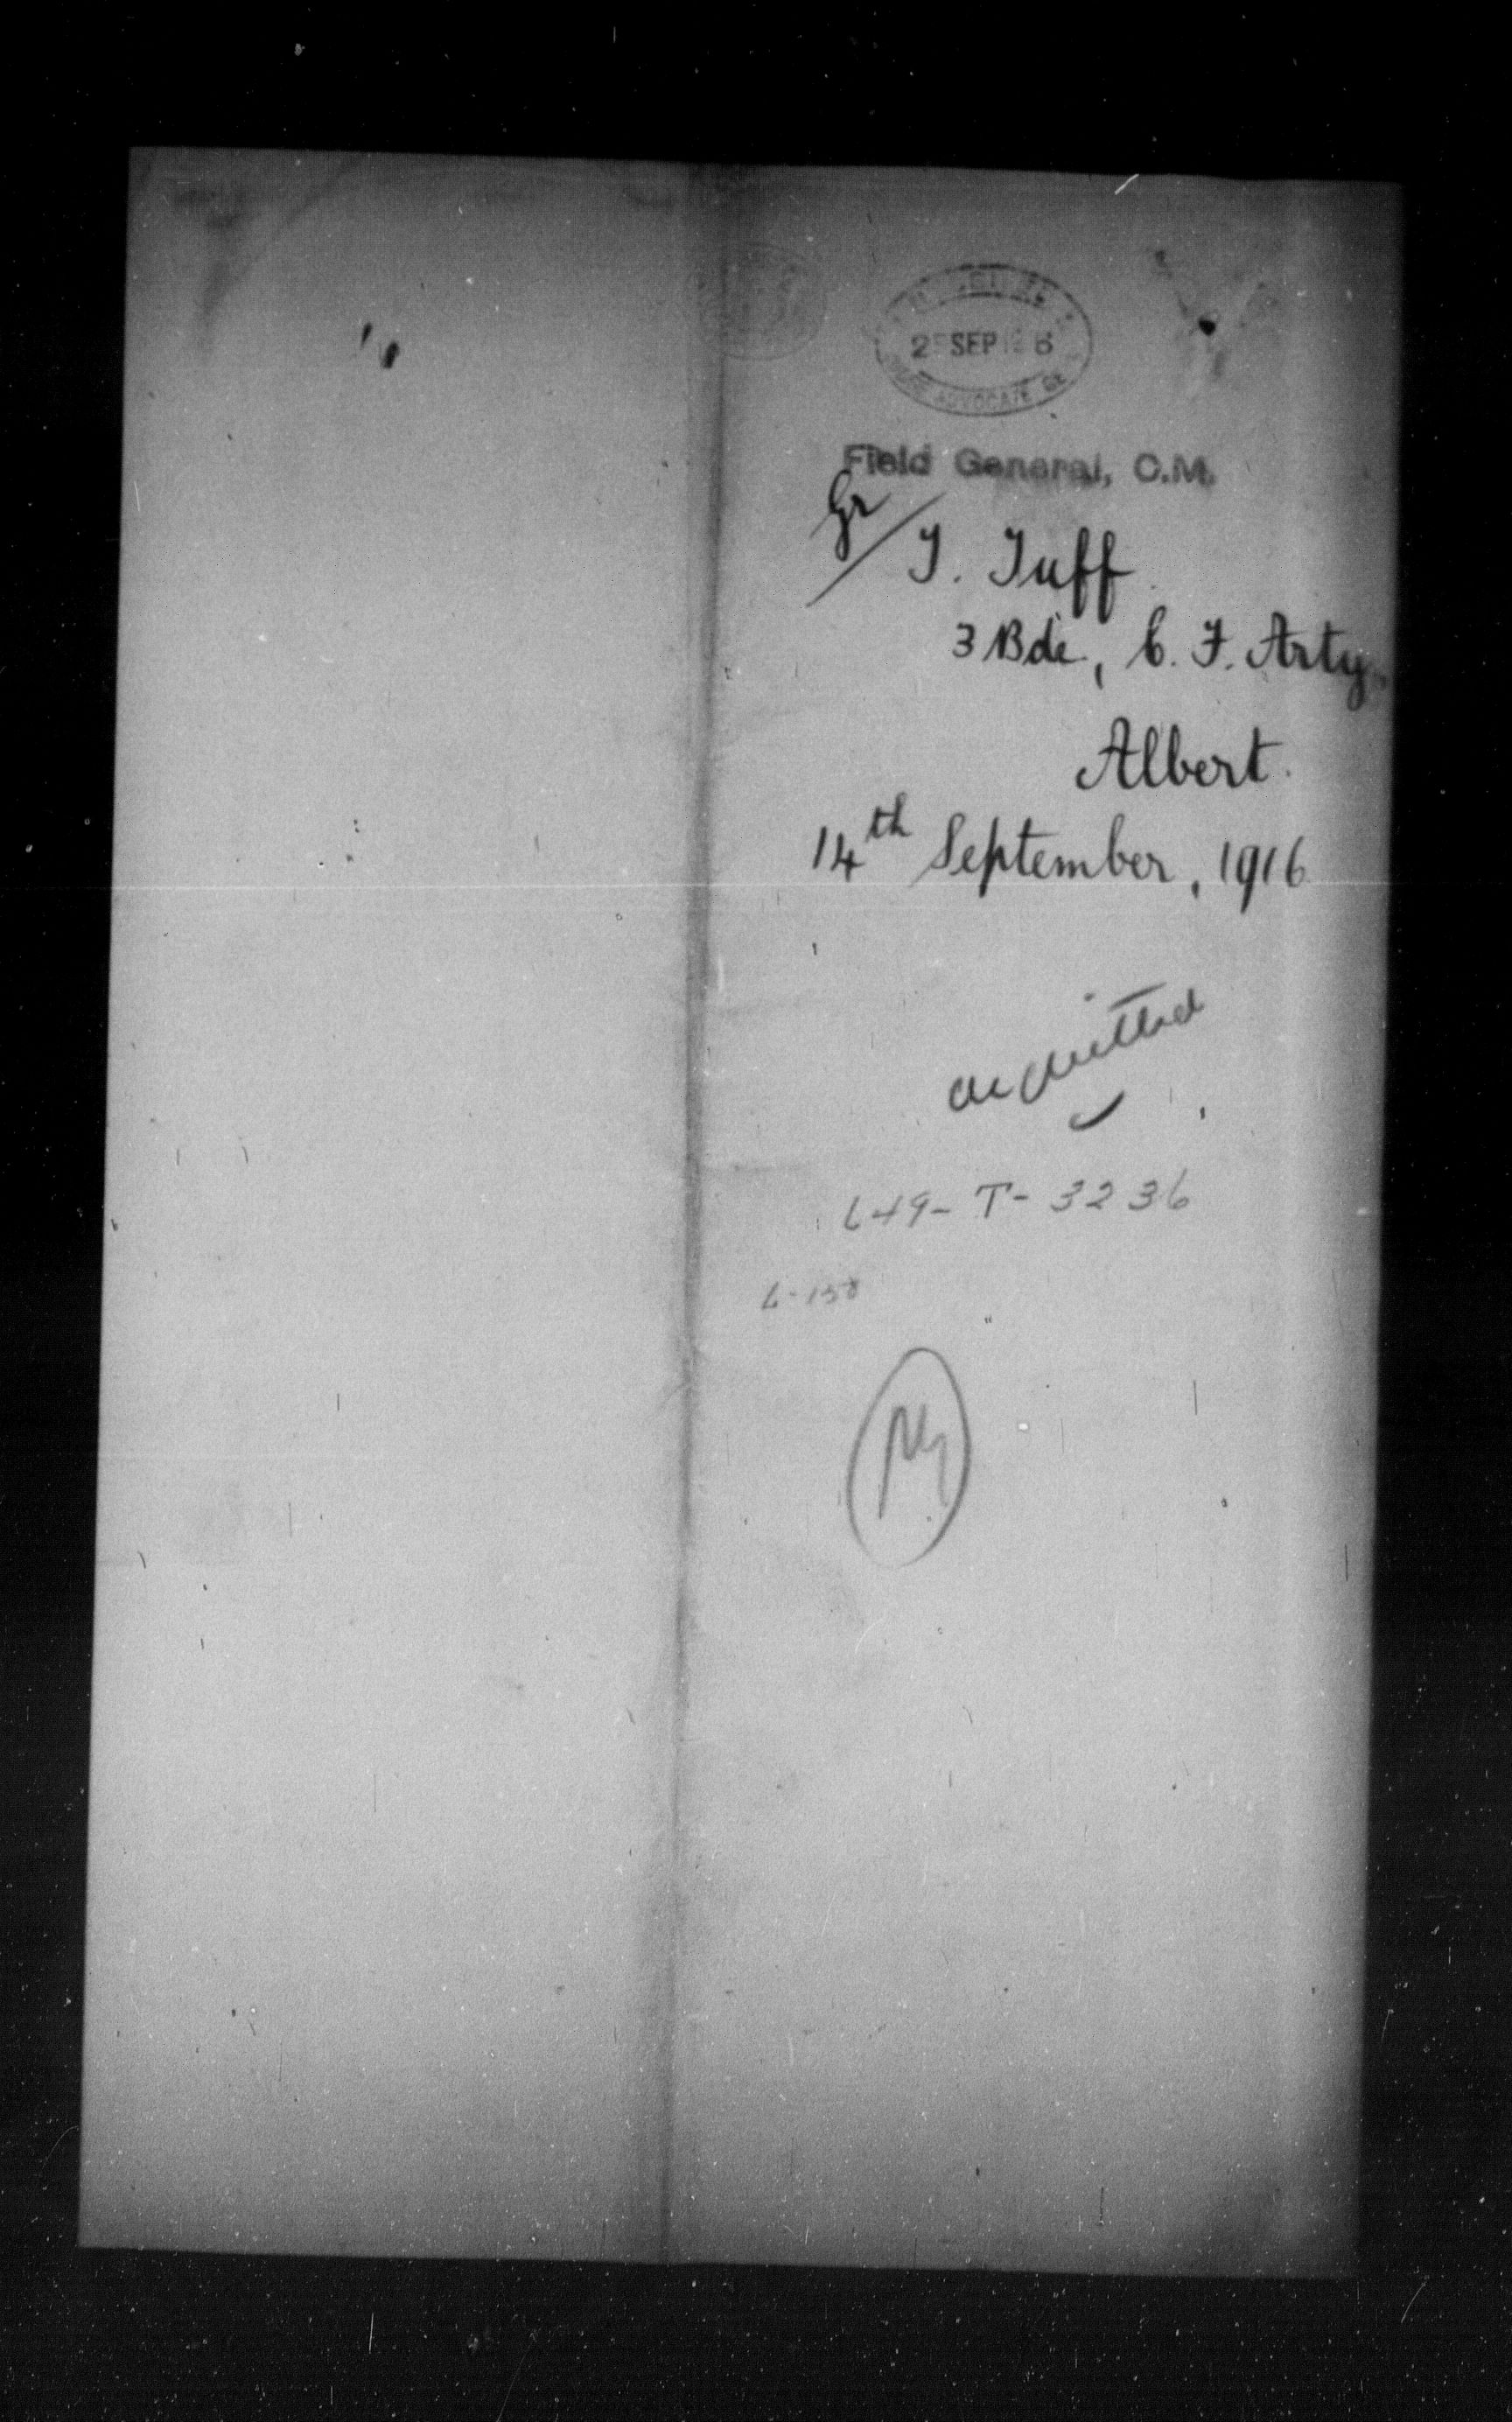 SEP
ADVOCATE
Field General, C.M.
Gr
T. Tuff
3 Bde, C. F. Arty.
Albert.
14th September, 1916
acquitted
649-T-3236